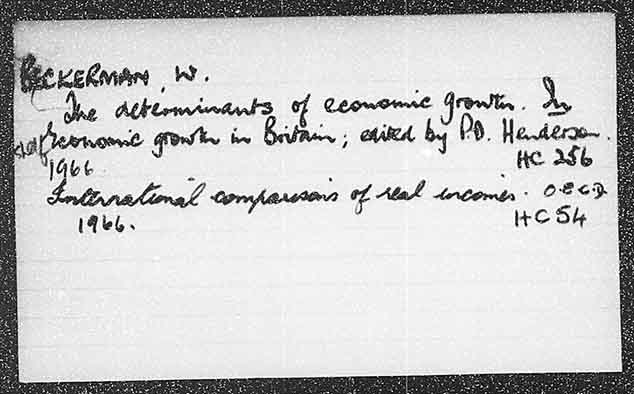 BECKERMAN, W.
The determinants of economic growth. In
Economic growth in Britain; edited by P.D. Henderson.
1966. HC 256
International comparisons of real incomes. O.E.C.D
1966. HC 54